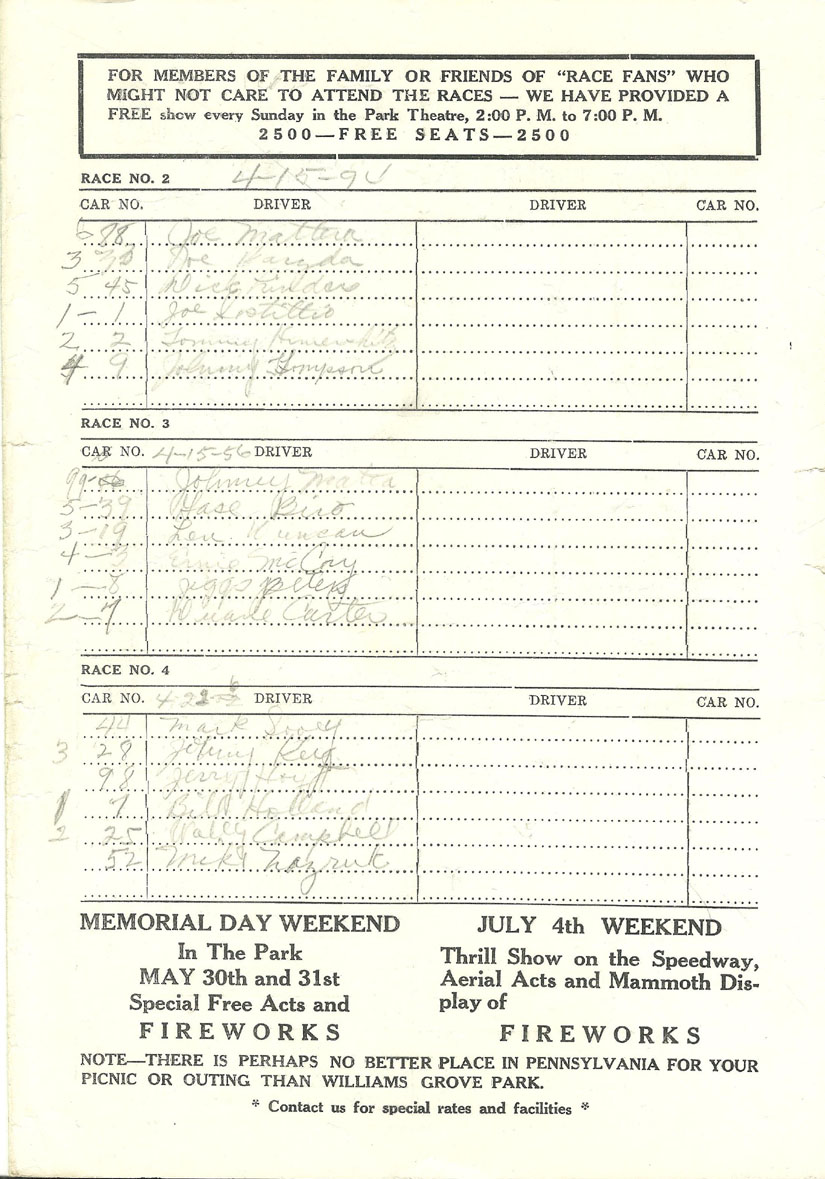 FOR MEMBERS OF THE FAMILY OR FRIENDS OF "RACE FANS" WHO
MIGHT NOT CARE TO ATTEND THE RACES — WE HAVE PROVIDED A
FREE show every Sunday in the Park Theatre, 2:00 P. M. to 7:00 P. M.
2500—FREE SEATS—2500
RACE NO. 2
CAR NO. DRIVER DRIVER CAR NO.
Joe Mattera
3 Joe
5 45 Dick
1 - 1 Joe Sostillio
2 2 Tommy
4 9 Johnny Thompson
RACE NO. 3
CAR NO. 4-15-56 DRIVER DRIVER CAR NO.
99 Johnney
5-39 Hase Biro
3-19 Len Duncan
4-3 Ernie McCoy
1-8 Jiggs Peters
2-7 Duane Carter
RACE NO. 4
CAR NO. DRIVER DRIVER CAR NO.
44 Mark
3 28 Johnny Key
98 Jerry Hoyt
1 7 Bill Holland
2 25 Wally Campbell
52 Mike Nazruk
MEMORIAL DAY WEEKEND
In The Park
MAY 30th and 31st
Special Free Acts and
FIREWORKS
JULY 4th WEEKEND
Thrill Show on the Speedway,
Aerial Acts and Mammoth Dis-
play of
FIREWORKS
NOTE—THERE IS PERHAPS NO BETTER PLACE IN PENNSYLVANIA FOR YOUR
PICNIC OR OUTING THAN WILLIAMS GROVE PARK.
* Contact us for special rates and facilities *